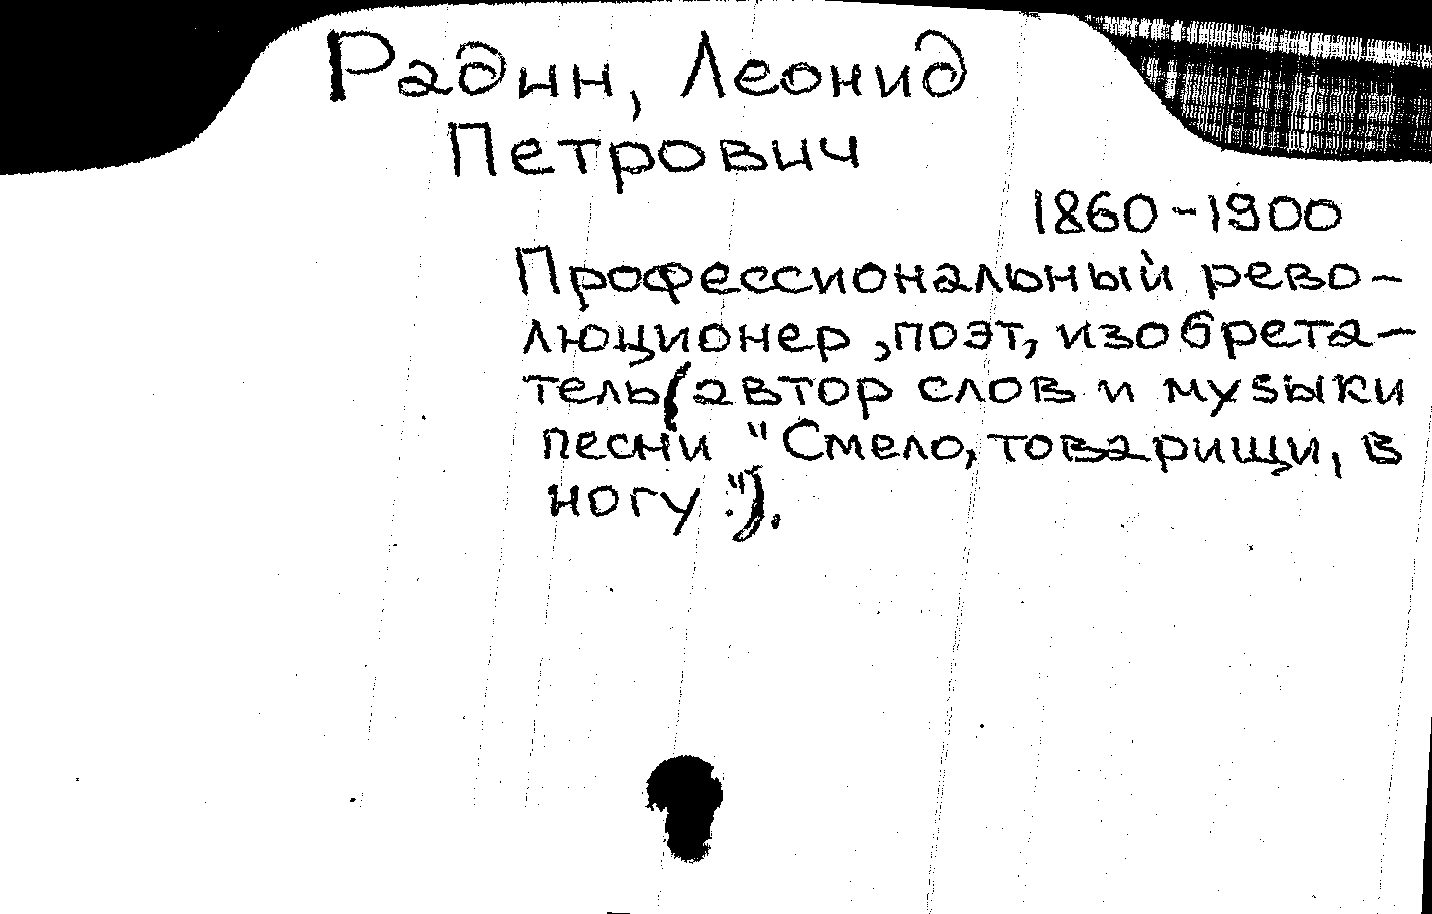 Радин, Леонид
Петрович
1860-1900
Профессиональный рево-
люционер, поэт, изобрета-
тель (автор слов и музыки
песни "Смело, товарищи, в
ногу!").